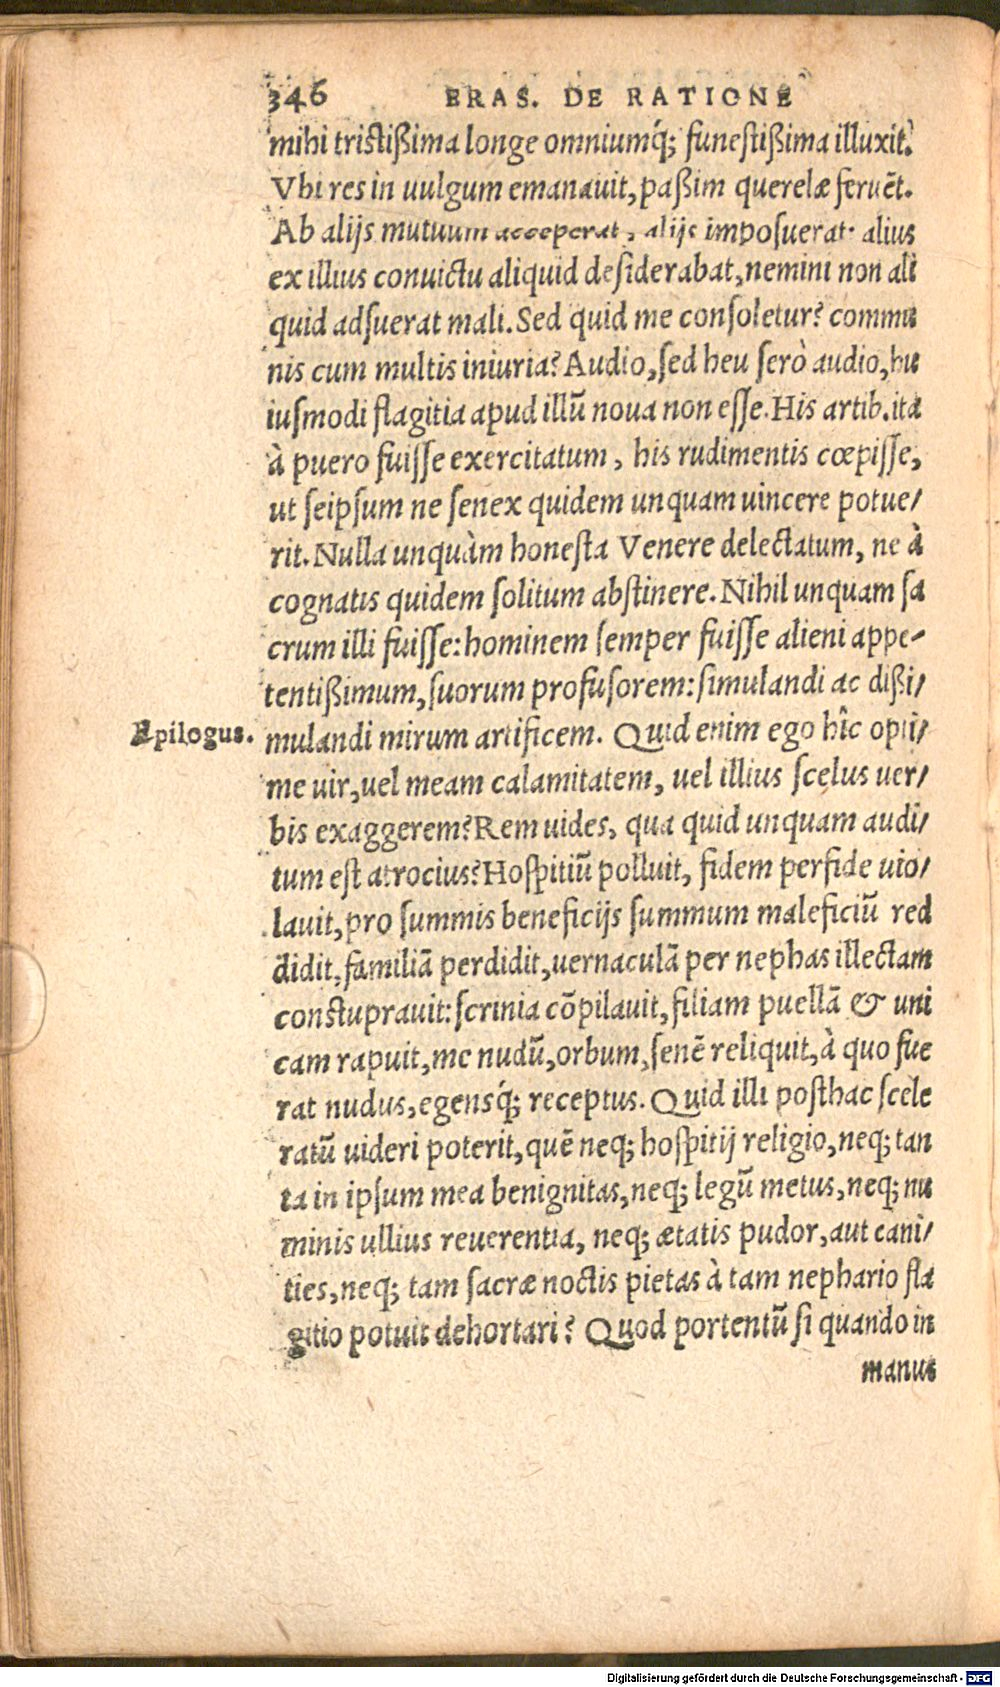 346 ERAS. DE RATIONE
mihi tristißima longe omniumq́; funestißima illuxit.
Vbi res in uulgum emanauit, paßim querelæ feruēt.
Ab alijs mutuum acceperat, alijs imposuerat. alius
ex illius conuictu aliquid desiderabat, nemini non ali
quid adsuerat mali. Sed quid me consoletur? commu
nis cum multis iniuria? Audio, sed heu serò audio, hu
iusmodi flagitia apud illū noua non esse. His artib. ita
à puero fuisse exercitatum, his rudimentis cœpisse,
ut seipsum ne senex quidem unquam uincere potue/
rit. Nulla unquàm honesta Venere delectatum, ne à
cognatis quidem solitum abstinere. Nihil unquam sa
crum illi fuisse: hominem semper fuisse alieni appe-
tentißimum, suorum profusorem: simulandi ac dißi/
Epilogus. mulandi mirum artificem. Quid enim ego hîc opti/
me uir, uel meam calamitatem, uel illius scelus uer/
bis exaggerem? Rem uides, qua quid unquam audi/
tum est atrocius? Hospitiū polluit, fidem perfide uio/
lauit, pro summis beneficijs summum maleficiū red
didit, familiā perdidit, uernaculā per nephas illectam
constuprauit: scrinia cōpilauit, filiam puellā & uni
cam rapuit, me nudū, orbum, senē reliquit, à quo fue
rat nudus, egensq́; receptus. Quid illi posthac scele
ratū uideri poterit, quē neq; hospitij religio, neq; tan
ta in ipsum mea benignitas, neq; legū metus, neq; nu
minis ullius reuerentia, neq; ætatis pudor, aut cani/
ties, neq; tam sacræ noctis pietas à tam nephario fla
gitio potuit dehortari? Quod portentū si quando in
manus
Digitalisierung gefördert durch die Deutsche Forschungsgemeinschaft - DFG